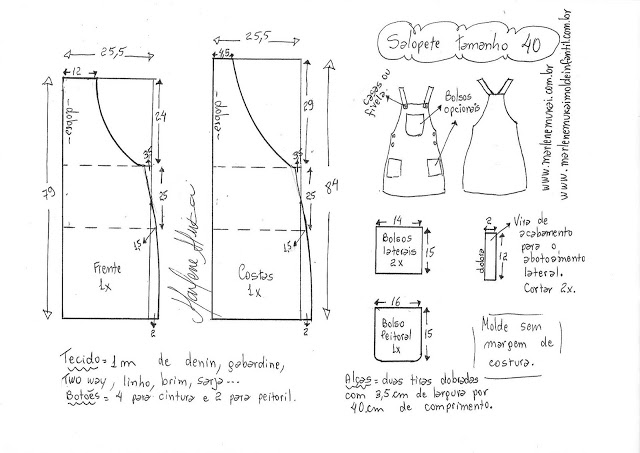 Salopete tamanho 40
25,5
12
dobra
24
3,5
79
25
1,5
Frente
1x
2
25,5
4,5
dobra
29
3,5
84
25
1,5
Costas
1x
2
Marlene Mukai
casas ou
fivela.
Bolsos
opcionais
www.marlenemukai.com.br
www.marlenemukaimoldeinfantil.com.br
14
Bolsos
laterais
2x
15
2
dobra
12
Vira de
acabamento
para o
abotoamento
lateral.
Cortar 2x.
16
Bolso
Peitoral
1x
15
Molde sem
margem de
costura.
Tecido = 1m de denin, gabardine,
Two way, linho, brim, sarja...
Botões = 4 para cintura e 2 para peitoril.
Alças = duas tiras dobradas
com 3,5cm de largura por
40cm de comprimento.